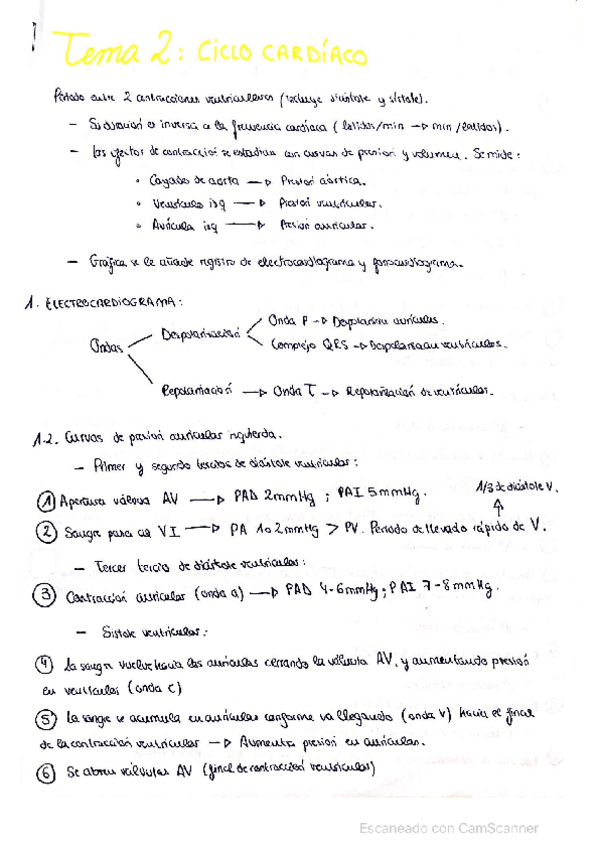 Tema 2: CICLO CARDÍACO
Periodo entre 2 contracciones ventriculares (incluye diástole y sístole).
- Su duración es inversa a la frecuencia cardíaca (latidos/min → min/latidos).
- Los efectos de contracción se estudian con curvas de presión y volumen. Se mide:
• Cayado de aorta → Presión aórtica.
• Ventrículo izq → Presión ventricular.
• Aurícula izq → Presión auricular.
- Gráfica se le añade registro de electrocardiograma y fonocardiograma.
1. ELECTROCARDIOGRAMA:
Ondas
Despolarización
Onda P → Despolariza aurículas.
Complejo QRS → Despolarizan ventrículos.
Repolarización → Onda T → Repolarización de ventrículos.
1.2. Curvas de presión auricular izquierda.
- Primer y segundo tercios de diástole ventricular:
1 Apertura válvula AV → PAD 2mmHg ; PAI 5mmHg.
1/3 de diástole V.
2 Sangre pasa al VI → PA 1 o 2 mmHg > PV. Periodo de llenado rápido de V.
- Tercer tercio de diástole ventricular:
3 Contracción auricular (onda a) → PAD 4-6mmHg; PAI 7-8mmHg.
- Sístole ventricular:
4 La sangre vuelve hacia las aurículas cerrando la válvula AV, y aumentando presión
en ventrículos (onda c)
5 La sangre se acumula en aurículas conforme va llegando (onda V) hacia el final
de la contracción ventricular → Aumenta presión en aurículas.
6 Se abren válvulas AV (final de contracción ventricular)
Escaneado con CamScanner